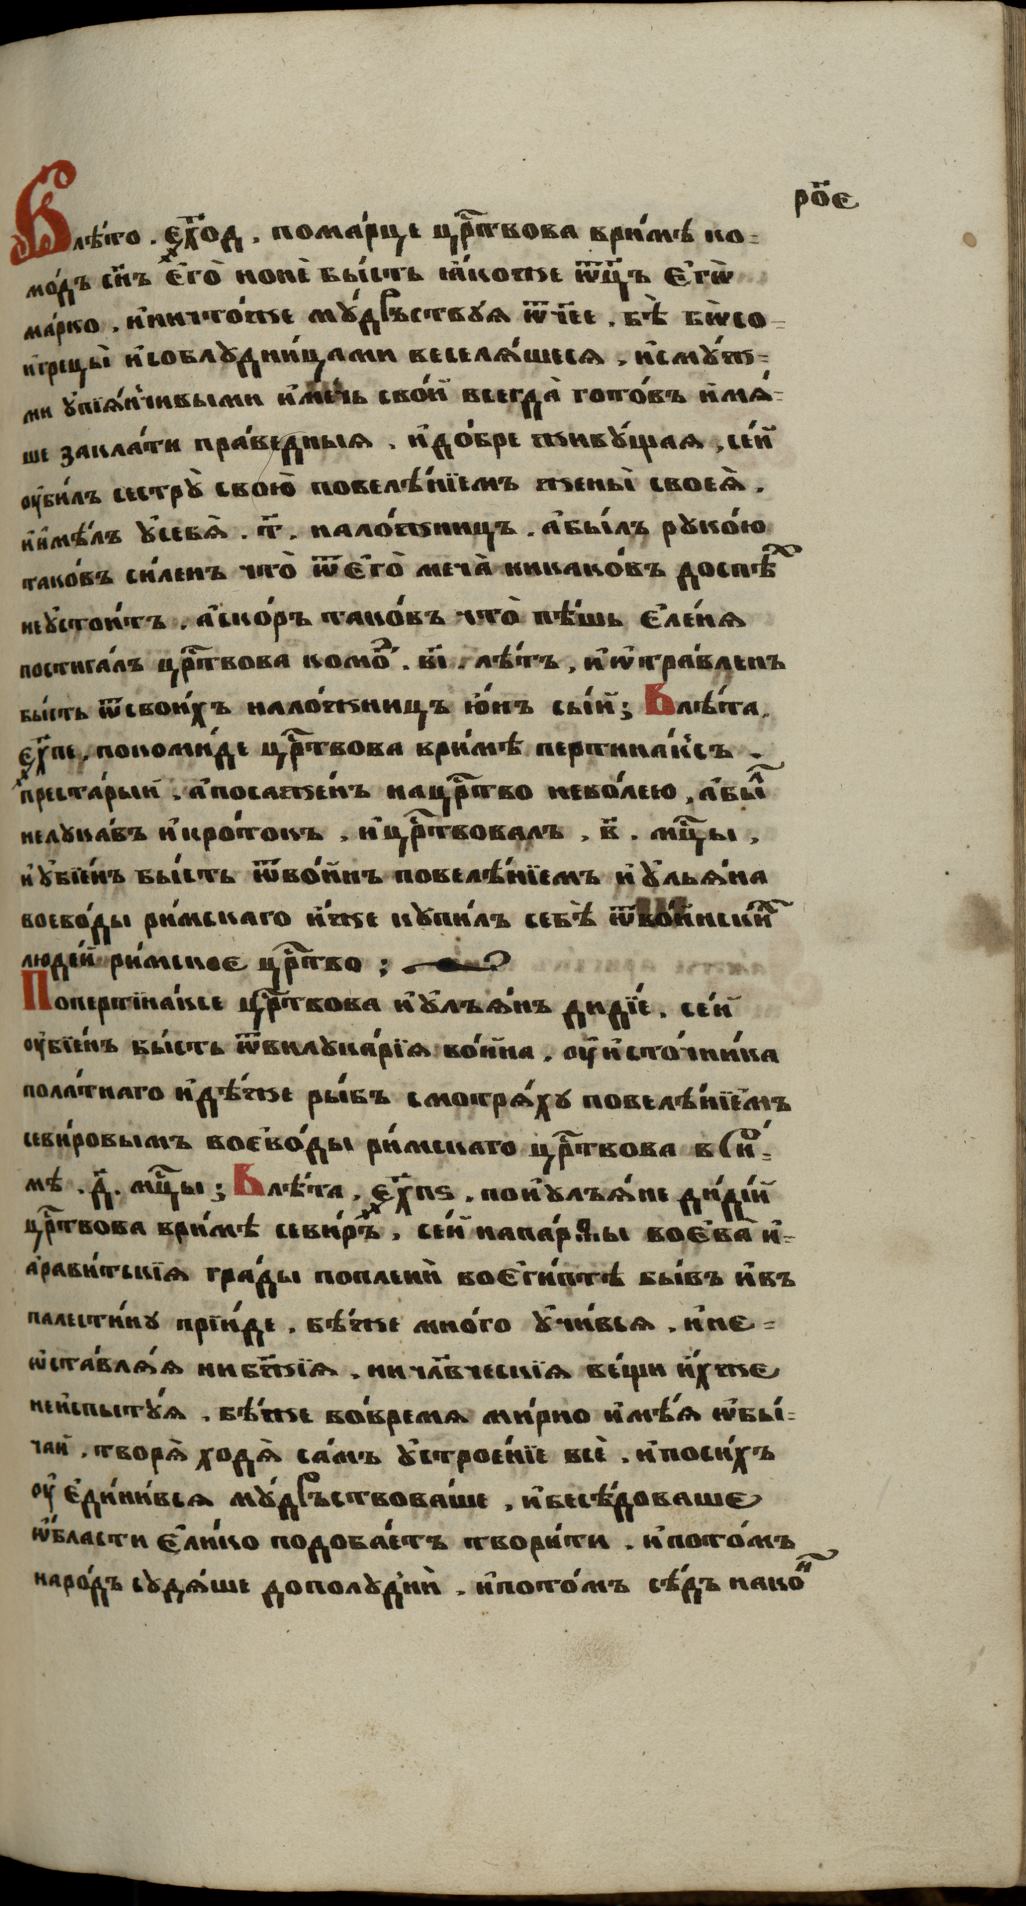 рое҃
Влѣ́то . ҂єх҃од . пома́рце цр҃твова ври́мѣ ко=
мо́дъ сн҃ъ є҆го̀ нонѐ бы́сть ꙗ҆́коже ѿц҃ъ є҆гѡ̀
ма́рко . и҆ничто́же мꙋ́дръствꙋѧ ѿч҃ее . бѣ̀ бѡ̀со
и҆грецы̀ и҆соблꙋдни́цами веселѧ́шесѧ . и҆смꙋ́ж=
ми ᲂупїѧ́нчивыми и҆ме́чь сво́й всегда̀ гото́въ и҆мѧ́=
ше закла́ти пра́ведныѧ . и҆до́бре живꙋ́щаѧ , се́й
ᲂу҆би́лъ сестрꙋ̀ свою̀ повелѣ́нїемъ жены̀ своеѧ̀ .
и҆и҆мѣ́лъ ᲂу҆себѧ̀ . т҃ . нало́жницъ . а҆бы́лъ рꙋко́ю
тако́въ си́ленъ что̀ ѿє҆го̀ меча̀ никако́въ доспѣ́х
неᲂу҆стои́тъ . а҆ско́ръ тако́въ что̀ пѣ́шь є҆ле́нѧ
постига́лъ цр҃твова комо́д . в҃і . лѣ́тъ , и҆ѡ҆тра́вленъ
бы́сть ѿсвои́хъ нало́жницъ ю҆́нъ сы́й ; Влѣ́та .
҂єх҃пе , покомо́де цр҃твова ври́мѣ пертина́ксъ .
преста́рый . а҆посаже́нъ нацр҃тво нево́лею , а҆бы́л
нелꙋка́въ и҆кро́токъ , и҆цр҃твовалъ , в҃ . мц҃ы ,
и҆ᲂу҆бїе́нъ бы́сть ѿво́инъ повелѣ́нїемъ и҆ᲂу҆льѧ́на
воево́ды ри́мскаго и҆́же кꙋпи́лъ себѣ̀ ѿво́инских
люде́й ри́мское цр҃тво ;
Попертїна́ксе цр҃твова и҆ᲂу҆льѧ́нъ дидїе́ . се́й
ᲂу҆бїе́нъ бы́сть ѿвилꙋка́рїѧ во́ина . ᲂу҆и҆сто́чника
пола́тнаго и҆дѣ́же ры́бъ смотрѧ́хꙋ повелѣ́нїемъ
севи́ровымъ воєво́ды ри́мскаго цр҃твова в ри́=
мѣ . д҃ . мц҃ы ; Влѣ́та , ҂єх҃пѕ , пои҆ᲂу҆лъѧ́не ди́дїй
цр҃твова ври́мѣ севи́ръ , се́й напа́рѳы воєва̀ и҆=
а҆рави́тскїѧ гра́ды попленѝ воє҆ги́птѣ бы́въ и҆въ
палести́нꙋ прїи́де . бѣ́же мно́го ᲂу҆чи́всѧ . и҆не=
ѡ҆ставлѧ́ѧ ниб҃жїѧ . ничл҃вческїѧ ве́щи и҆́хже
неи҆спытꙋ́ѧ . бѣ́же во́времѧ ми́рно и҆мѣ́ѧ ѡ҆бы́=
чай . творѧ̀ ходѧ̀ са́мъ ᲂу҆строе́нїе всѐ . и҆поси́хъ
ᲂу҆єдини́всѧ мꙋ́дръствова́ше , и҆бесѣ́доваше
ѡ҆́бласти є҆ли́ко подоба́етъ твори́ти . и҆пото́мъ
наро́дъ сꙋдѧ́ше дополꙋ́днѝ . и҆пото́мъ сѣ́дъ нако́н